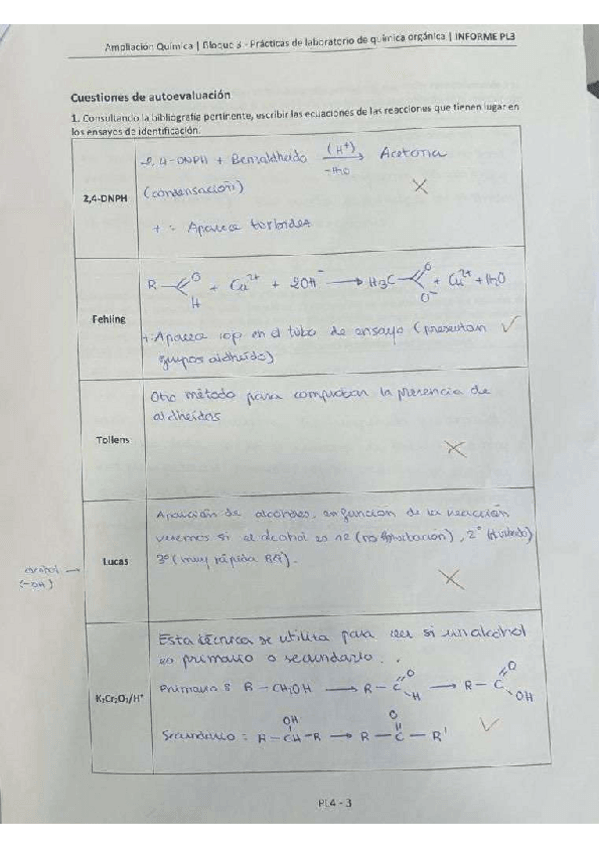 Ampliación Química | Bloque 3 - Prácticas de laboratorio de química orgánica | INFORME PL3
Cuestiones de autoevaluación
1. Consultando la bibliografía pertinente, escribir las ecuaciones de las reacciones que tienen lugar en
los ensayos de identificación.
2,4-DNPH
2,4-DNPH + Benzaldheido (H⁺) → Acetona
-H₂O
(condensación)
+ = Aparece
Fehling
R - C O H + Cu²⁺ + 2OH⁻ → H₃C - C O O⁻ + Cu²⁺ + H₂O
+: Aparece en el tubo de ensayo (presentan
grupos aldheído)
Tollens
Otro método para comprobar la presencia de
aldheidos
alcohol →
(-OH)
Lucas
Aparición de alcoholes, en función de la reacción
veremos si el alcohol es 1º (no), 2º
3º (muy rápida).
K₂Cr₂O₇/H⁺
Esta técnica se utiliza para ver si un alcohol
es primario o secundario.
Primario: R - CH₂OH → R - C O H → R - C O OH
Secundario = R - CH - R → R - C - R'
OH O
PL4 - 3